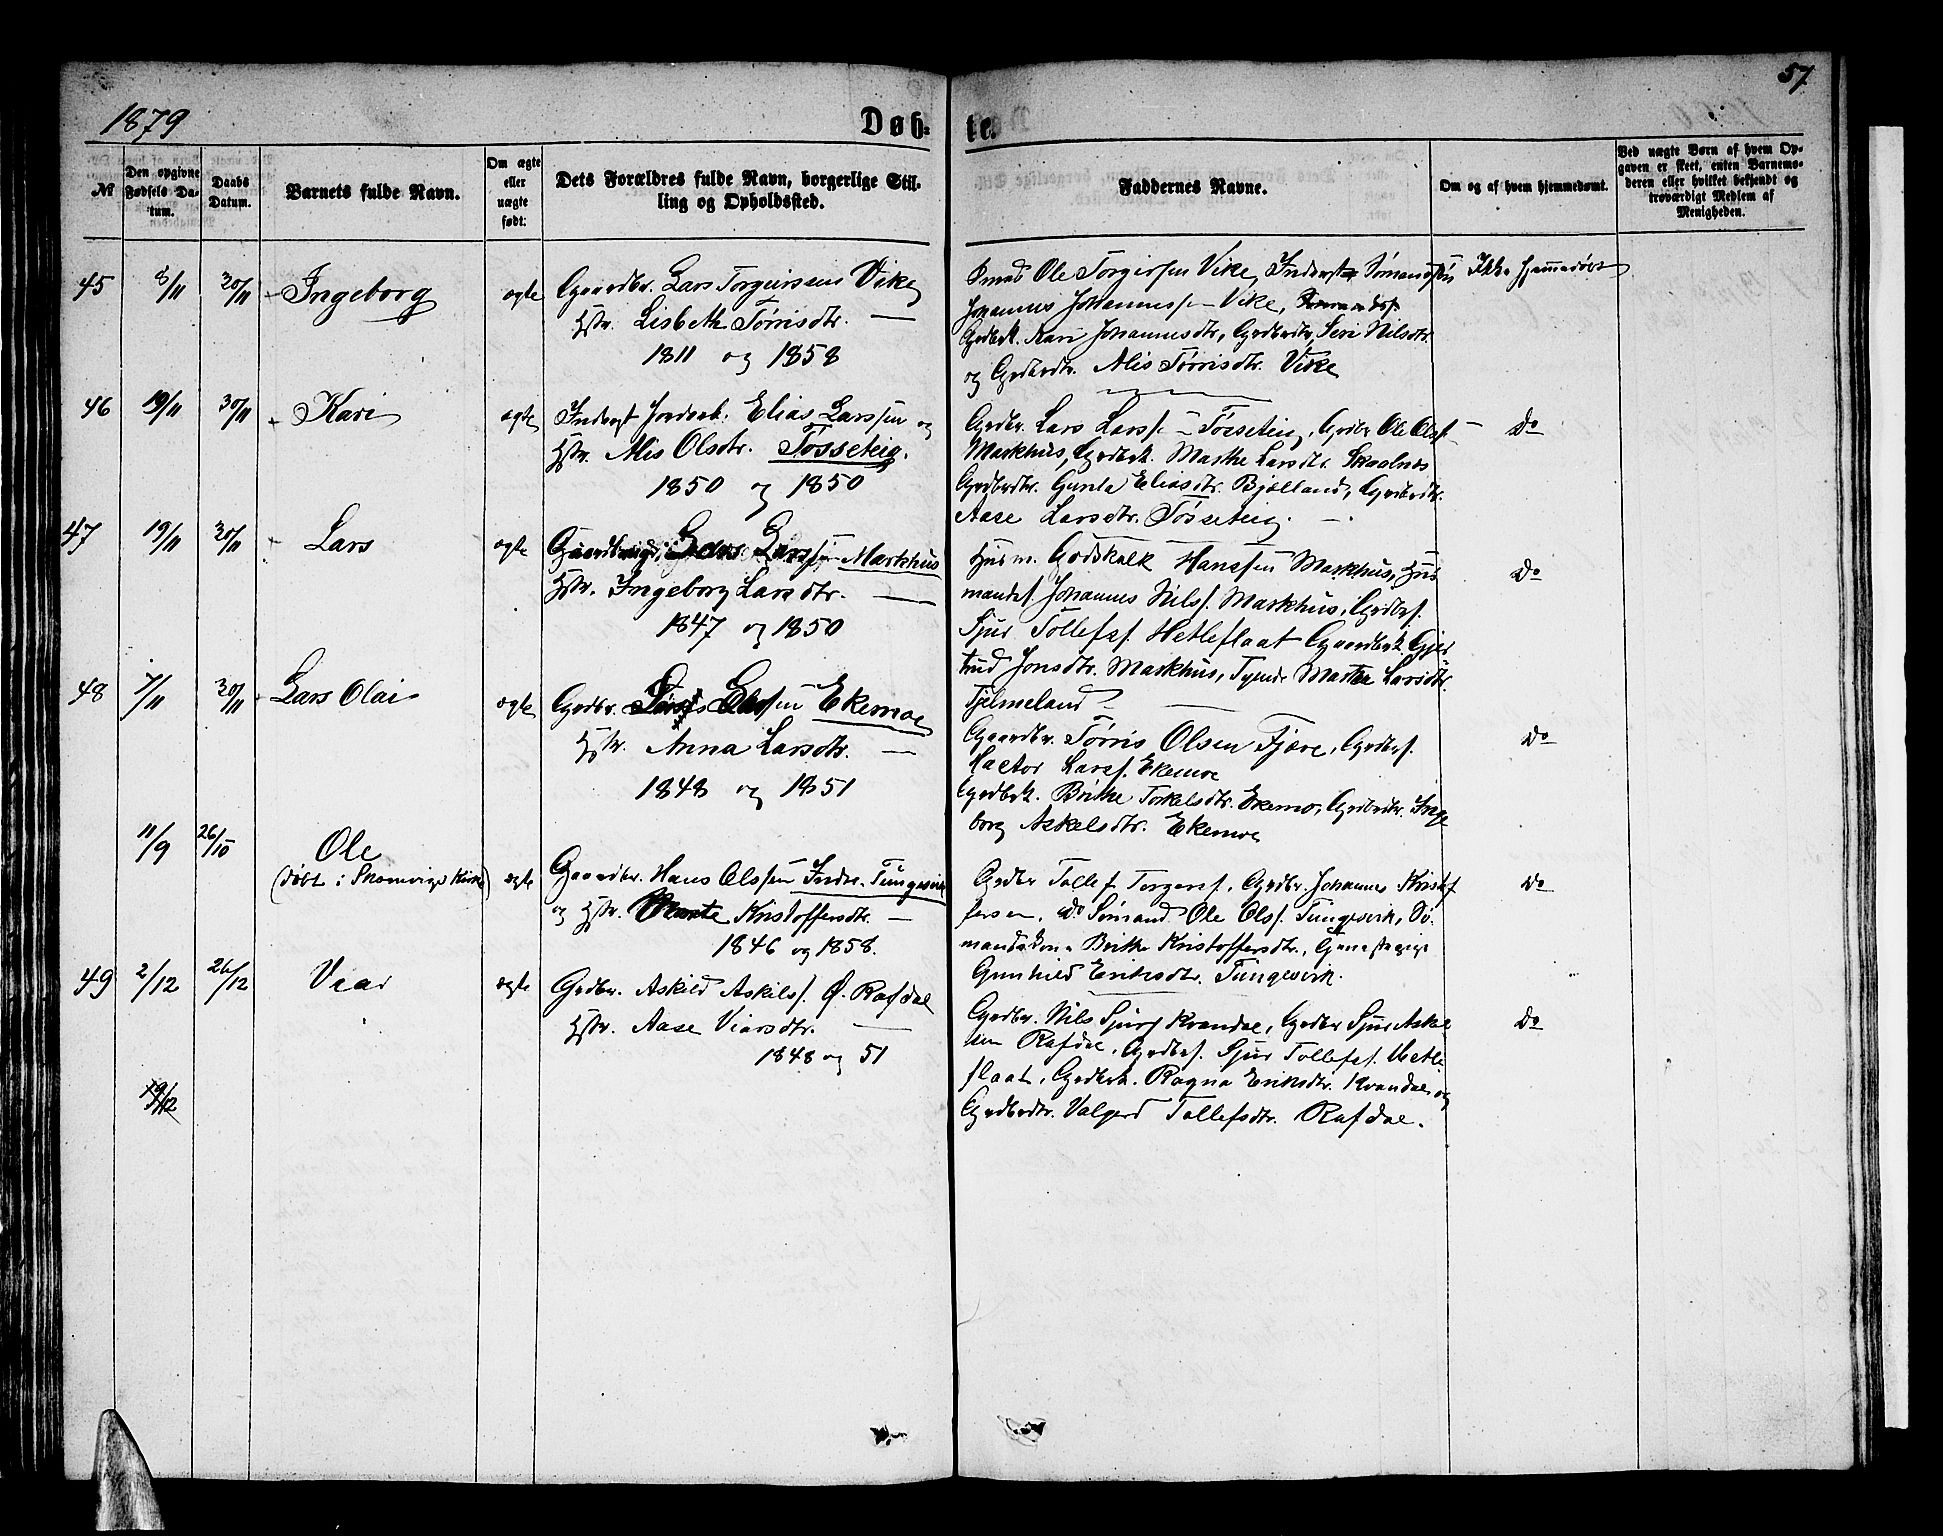 57
1879
Døb-
te.
No
Den opgivne Fødsels Da-tum.
Daabs Datum.
Barnets fulde Navn.
Om ægte eller uægte født.
Dets Forældres fulde Navn, borgerlige Stil-
ling og Opholdssted.
Faddernes Navne.
Om og af hvem hjemmedøbt.
Ved uægte Børn af hvem Op-
gaven er skeet, enten Barnemo-
deren eller hvilket bekjendt og
troværdigt Medlem af
Menigheden.
45 8/11 30/11 Ingeborg ægte Gaardbr. Lars Torgeirssen Vike
Hstr. Lisbeth Tørrisdtr. —
1811 og 1858
Ole Torgirssen Vike, Sømand
Johannes Johanness. Vike,
Grdbrk. Kari Johannesdtr, Grdbrdtr, Seri Nilsdtr.
og Grdbrdtr. Alis Tørrisdtr. Vike
Ikke hjemmedøbt
46 19/11 30/11 Kari ægte Inderst Elias Larssen og
Hstr. Alis Olsdtr. Tøsseteig.
1850 og 1850
Grdbr. Lars Larss. Tøsseteig, Grdbr Ole Olss.
Markhus, Grdbrk. Marthe Larsdtr. Skaalnes
Grdbrdtr. Gunla Eliasdtr. Bjælland, Grdbrdtr.
Aase Larsdtr. Tøsseteig. —
Do
47 19/11 30/11 Lars ægte Gaardbruger Lars Larssen Markhus
Hstr. Ingeborg Larsdtr. —
1847 og 1850
Husm. Godskalk Hanssen Markhus, Hus
mands. Johannes Nilss. Markhus, Grdbrs.
Sjur Tollefss. Hetleflaat Gaardbrk. Gjer
trud Jonsdtr. Markhus, Tjend. Martha Larsdtr.
Tjelmeland
Do
48 7/11 30/11 Lars Olai ægte Grdbr. Olssen Ekemoe
Hstr. Anna Larsdtr. —
1848 og 1851
Gaardbr. Tørris Olsen Fjære, Grdbrs.
Larss. Ekemoe
Grdbrk. Brithe Torkelsdtr. Ekemo, Grdbrdtr. Inge
borg Askelsdtr. Ekemoe
Do
11/9 26/10 Ole
(døbt i Skonevigs Kirke) ægte Gaardbr. Hans Olssen Indre Tungesvik
og Hstr. Marite Kristoffersdtr. —
1846 og 1858.
Grdbr Tollef Torgers., Grdbr. Johannes Kristof
fersen, Do Sømand Ole Olss. Tungesvik, Sø-
mandskone Brithe Kristoffersdtr., Ganefrapige
Gunhild Eriksdtr. Tungesvik.
Do
49 2/12 26/12 Viar ægte Grdbr. Askild Askils. Ø. Rafdal
Hstr. Aase Viarsdtr. —
1848 og 51
Grdbr. Nils Sjurs. Kvandal, Grdbr Sjur Askel
sen Rafdal, Grdbrs. Sjur Tollefss. Hetle-
flaat, Grdbrk. Ragna Eriksdtr. Kvandal og
Grdbrdtr. Valgerd Tollefsdtr. Rafdal.
Do
19/12